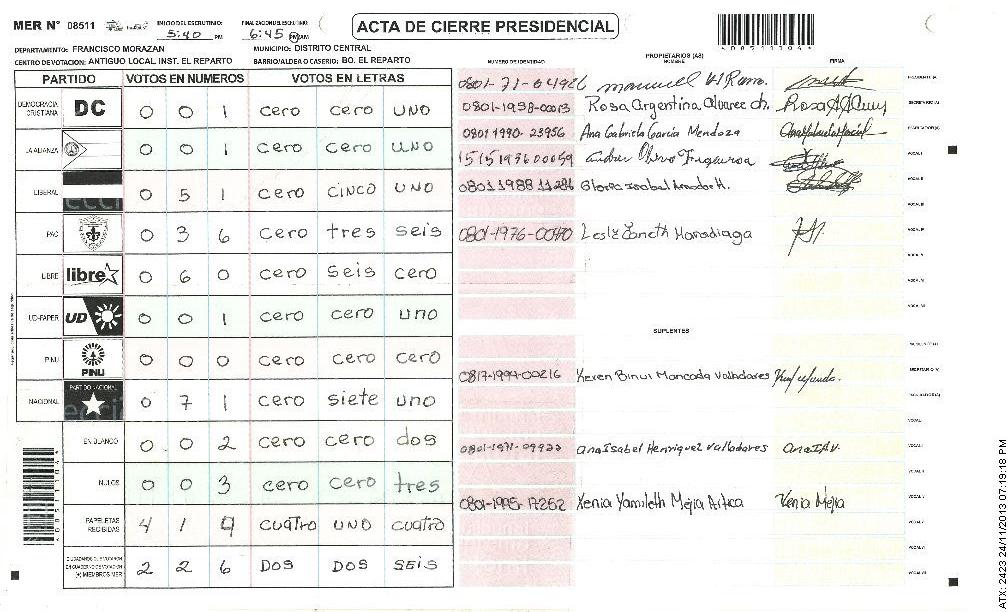 MER N° 08511
INICIO DEL ESCRUTINIO: 5:40 PM
FINALIZACION DEL ESCRUTINIO: 6:45 PM
ACTA DE CIERRE PRESIDENCIAL
DEPARTAMENTO: FRANCISCO MORAZAN
MUNICIPIO: DISTRITO CENTRAL
CENTRO DE VOTACION: ANTIGUO LOCAL INST. EL REPARTO
BARRIO/ALDEA O CASERIO: BO. EL REPARTO
PARTIDO VOTOS EN NUMEROS VOTOS EN LETRAS
DEMOCRACIA CRISTIANA DC 0 0 1 cero cero uno
LA ALIANZA 0 0 1 cero cero uno
LIBERAL 0 5 1 cero cinco uno
PAC 0 3 6 cero tres seis
LIBRE libre 0 6 0 cero seis cero
UD-FAPER UD 0 0 1 cero cero uno
PINU PINU 0 0 0 cero cero cero
NACIONAL PARTIDO NACIONAL 0 7 1 cero siete uno
EN BLANCO 0 0 2 cero cero dos
NULOS 0 0 3 cero cero tres
PAPELETAS RECIBIDAS 4 1 4 cuatro uno cuatro
CIUDADANOS QUE VOTARON EN CUADERNO DE VOTACION (+) MIEMBROS MER 2 2 6 DOS DOS SEIS
NUMERO DE IDENTIDAD
PROPIETARIOS (AS)
NOMBRE
FIRMA
0801-71-04926 manuel
PRESIDENTE (A)
0801-1938-00013 Rosa Argentina Alvarez ch.
SECRETARIO (A)
0801 1990-23956 Ana Gabriela Garcia Mendoza
ESCRUTADOR (A)
1515197600059
VOCAL I
0801 1988 11286
VOCAL II
VOCAL III
0801-1976-0070
VOCAL IV
VOCAL V
VOCAL VI
VOCAL VII
SUPLENTES
0817-1994-00216 Keren Binui Moncada Valladares
SECRETARIO (A)
VOCAL I
0801-1971-09922 Ana Isabel Henriquez Valladares
VOCAL II
0801-1995-17252 Xenia Yamileth Mejia Xenia Mejia
ATX: 2423 24/11/2013 07:19:18 PM